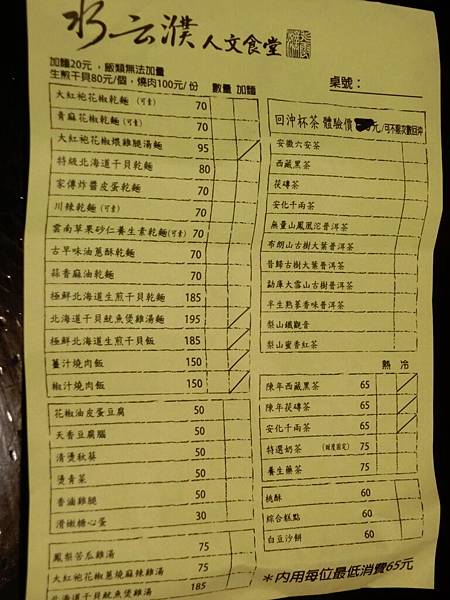 水云濮 人文食堂
加麵20元，飯類無法加量
生煎干貝80元/個，燒肉100元/份
數量 加麵
大紅袍花椒乾麵 (可素) 70
青麻花椒乾麵 (可素) 70
大紅袍花椒煨雞腿湯麵 95
特級北海道干貝乾麵 80
家傳炸醬皮蛋乾麵 70
川辣乾麵 (可素) 70
雲南草果砂仁養生素乾麵(可素) 70
古早味油蔥酥乾麵 70
蒜香麻油乾麵 70
極鮮北海道生煎干貝乾麵 185
北海道干貝魷魚煲雞湯麵 195
極鮮北海道生煎干貝飯 185
薑汁燒肉飯 150
椒汁燒肉飯 150
花椒油皮蛋豆腐 50
天香豆腐腦 50
清燙秋葵 50
燙青菜 50
香滷雞腿 50
滑嫩糖心蛋 30
鳳梨苦瓜雞湯 75
大紅袍花椒蔥燒麻辣雞湯 75
北海道干貝魷魚煲雞湯 185
桌號：
回沖杯茶 體驗價 元/可不限次數回沖
安徽六安茶
西藏黑茶
茯磚茶
安化千兩茶
無量山鳳凰沱普洱茶
布朗山古樹大葉普洱茶
昔歸古樹大葉普洱茶
勐庫大雪山古樹普洱茶
半生熟蔘香味普洱茶
梨山鐵觀音
梨山蜜香紅茶
熱 冷
陳年西藏黑茶 65
陳年茯磚茶 65
安化千兩茶 65
特選奶茶 (甜度固定) 75
養生藥茶 75
桃酥 60
綜合糕點 60
白豆沙餅 60
＊內用每位最低消費65元